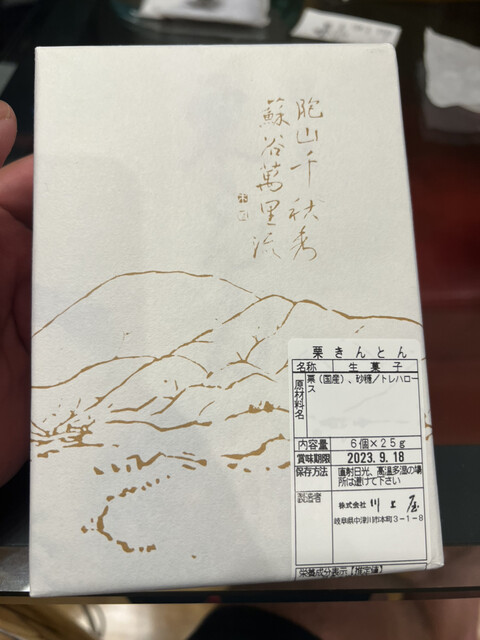 胞山千秋秀
蘇谷萬里流
栗きんとん
名称 生菓子
原材料名 栗(国産)、砂糖/トレハロー
ス
内容量 6個×25g
賞味期限 2023.9.18
保存方法 直射日光、高温多湿の場
所は避けて下さい
製造者 株式会社 川上屋
岐阜県中津川市本町3-1-8
栄養成分表示【推定値】